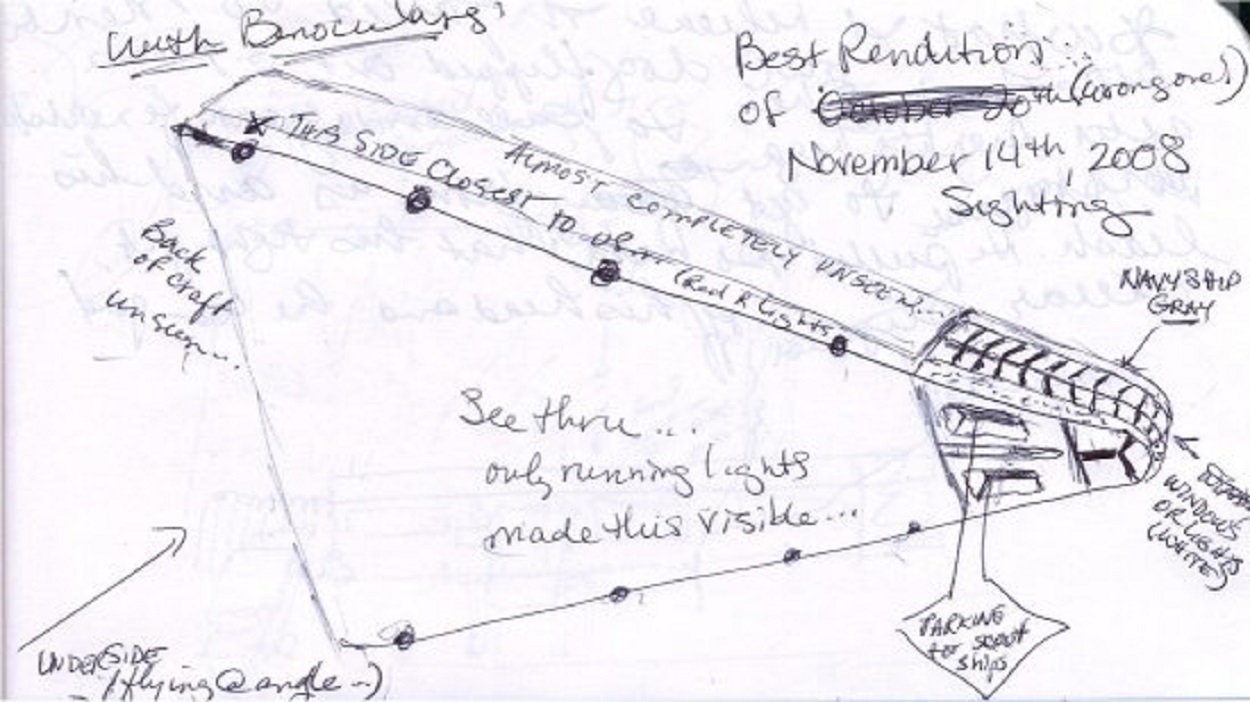 With Binoculars:
Best Rendition...
of October 20th (wrong one!)
November 14th, 2008
Sighting
THIS SIDE CLOSEST TO
(Red R lights
ALMOST COMPLETELY UNSEEN...
Back
of craft
unseen...
NAVY SHIP
GRAY
See thru...
only running lights
made this visible...
WINDOWS
OR LIGHTS
(WHITE)
PARKING
for scout
ships
UNDERSIDE
(flying @ angle...)